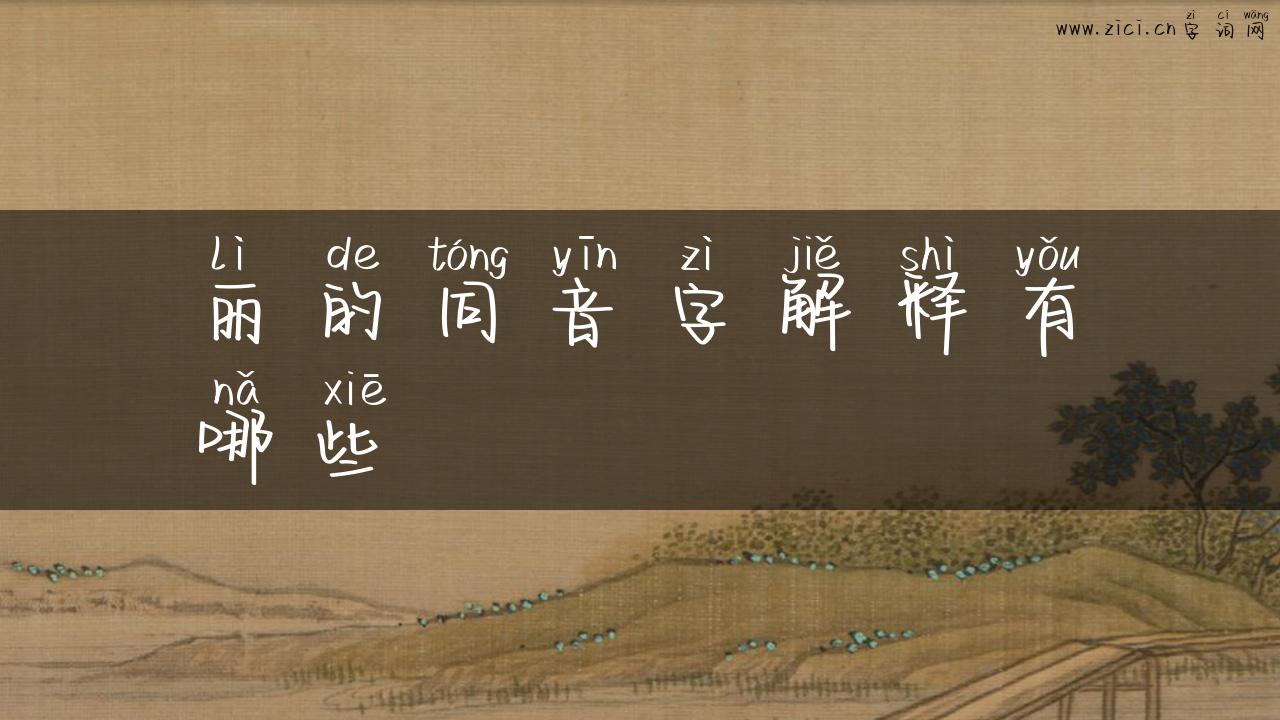 zì cí wǎng
www.zici.cn 字词网
lì de tóng yīn zì jiě shì yǒu
丽的同音字解释有
nǎ xiē
哪些